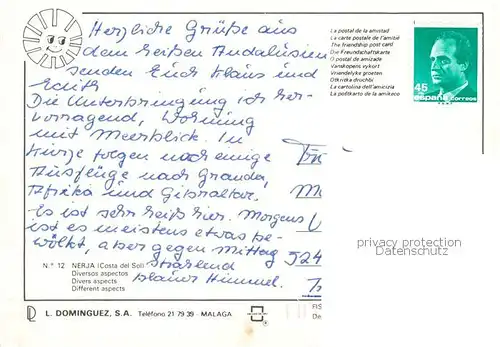 Herzliche Grüße aus
dem heißen Andalusien
senden Euch Klaus und
Edith
Die Unterbringung ist her-
vorragend, Wohnung
mit Meerblick. In
Kürze folgen noch einige
Ausflüge nach Granada,
Afrika und Gibraltar.
Es ist sehr heiß hier. Morgens
ist es meistens etwas be-
wölkt, aber gegen Mittag
strahlend
blauer Himmel.
La postal de la amistad
La carte postale de l'amitié
The friendship post card
Die Freundschaftskarte
O postal de amizade
Vanskapens vykort
Vriendelyke groeten
Otkritka druchbi
La cartolina dell'amicizia
La poŝtkarto de la amikeco
45
españa correos
524
privacy protection
Datenschutz
N.º 12 NERJA (Costa del Sol)
Diversos aspectos
Divers aspects
Different aspects
L. DOMINGUEZ, S.A. Teléfono 21 79 39 - MALAGA